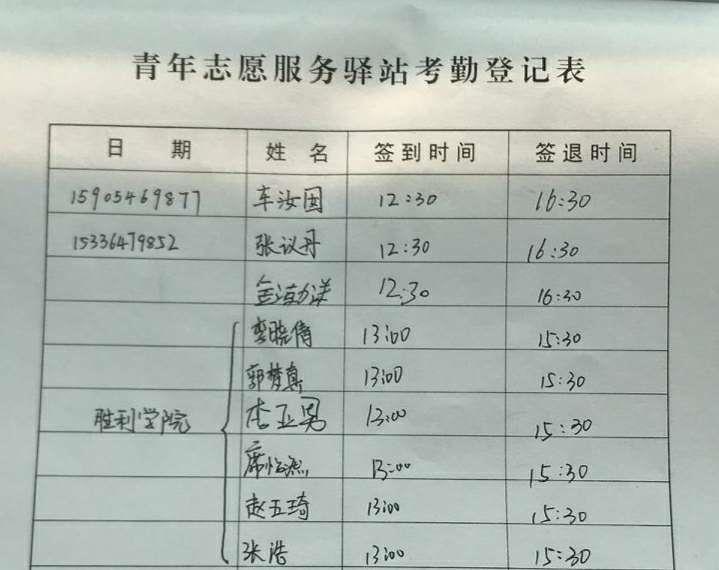 青年志愿服务驿站考勤登记表
日 期 姓 名 签到时间 签退时间
15905469877 车汝国 12:30 16:30
15336479852 张议丹 12:30 16:30
12:30 16:30
李晓倩 13:00 15:30
郭梦真 13:00 15:30
胜利学院 李亚男 13:00 15:30
席 13:00 15:30
赵五琦 13:00 15:30
张浩 13:00 15:30